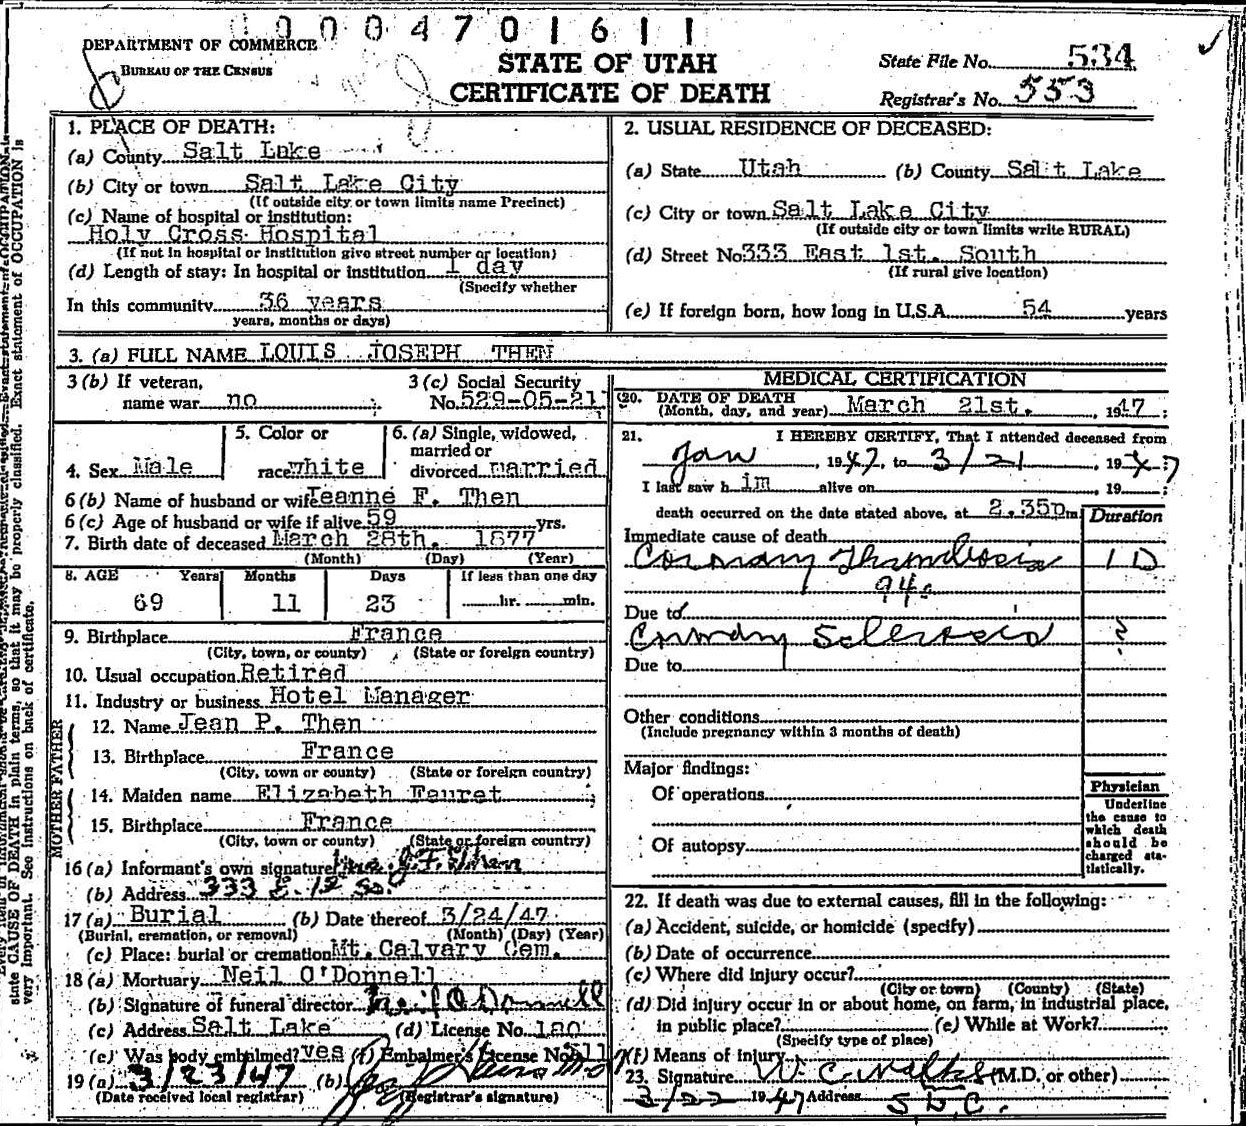 0004701611
DEPARTMENT OF COMMERCE
BUREAU OF THE CENSUS
STATE OF UTAH
CERTIFICATE OF DEATH
State File No. 534
Registrar's No. 553
1. PLACE OF DEATH:
(a) County Salt Lake
(b) City or town Salt Lake City
(If outside city or town limits name Precinct)
(c) Name of hospital or institution:
Holy Cross Hospital
(If not in hospital or institution give street number or location)
(d) Length of stay: In hospital or institution 1 day
(Specify whether
In this community 36 years
years, months or days)
2. USUAL RESIDENCE OF DECEASED:
(a) State Utah (b) County Salt Lake
(c) City or town Salt Lake City
(If outside city or town limits write RURAL)
(d) Street No. 333 East 1st. South
(If rural give location)
(e) If foreign born, how long in U.S.A. 54 years
3. (a) FULL NAME LOUIS JOSEPH THEN
3 (b) If veteran,
name war no
3 (c) Social Security
No. 529-05-211
4. Sex Male
5. Color or
race white
6. (a) Single, widowed,
married or
divorced married
6 (b) Name of husband or wife Jeanne F. Then
6 (c) Age of husband or wife if alive 59 yrs.
7. Birth date of deceased March 28th. 1877
(Month) (Day) (Year)
8. AGE Years Months Days If less than one day
69 11 23 hr. min.
9. Birthplace France
(City, town, or county) (State or foreign country)
10. Usual occupation Retired
11. Industry or business Hotel Manager
FATHER
12. Name Jean P. Then
13. Birthplace France
(City, town or county) (State or foreign country)
MOTHER
14. Maiden name Elizabeth Fauret
15. Birthplace France
(City, town or county) (State or foreign country)
16 (a) Informant's own signature J. F. Then
(b) Address 333 E. 1st So.
17 (a) Burial (b) Date thereof 3/24/47
(Burial, cremation, or removal) (Month) (Day) (Year)
(c) Place: burial or cremation Mt. Calvary Cem.
18 (a) Mortuary Neil O'Donnell
(b) Signature of funeral director Neil O'Donnell
(c) Address Salt Lake (d) License No. 180
(e) Was body embalmed? yes (f) Embalmer's License No. 511
19 (a) 3/23/47 (b)
(Date received local registrar) (Registrar's signature)
MEDICAL CERTIFICATION
20. DATE OF DEATH
(Month, day, and year) March 21st. , 1947;
21. I HEREBY CERTIFY, That I attended deceased from
Jan , 1947, to 3/21 , 1947;
I last saw h im alive on , 19 ;
death occurred on the date stated above, at 2.35pm
Duration
Immediate cause of death
Coronary Thrombosis 1 D
94a
Due to
Coronary Sclerosis ?
Due to
Other conditions
(Include pregnancy within 3 months of death)
Major findings:
Of operations
Of autopsy
Physician
Underline
the cause to
which death
should be
charged sta-
tistically.
22. If death was due to external causes, fill in the following:
(a) Accident, suicide, or homicide (specify)
(b) Date of occurrence
(c) Where did injury occur?
(City or town) (County) (State)
(d) Did injury occur in or about home, on farm, in industrial place,
in public place? (e) While at Work?
(Specify type of place)
(f) Means of injury
23. Signature W. C. Walker (M.D. or other)
3/22 1947 Address S.L.C.
state CAUSE OF DEATH in plain terms, so that it may be properly classified. Exact statement of OCCUPATION is
very important. See instructions on back of certificate.